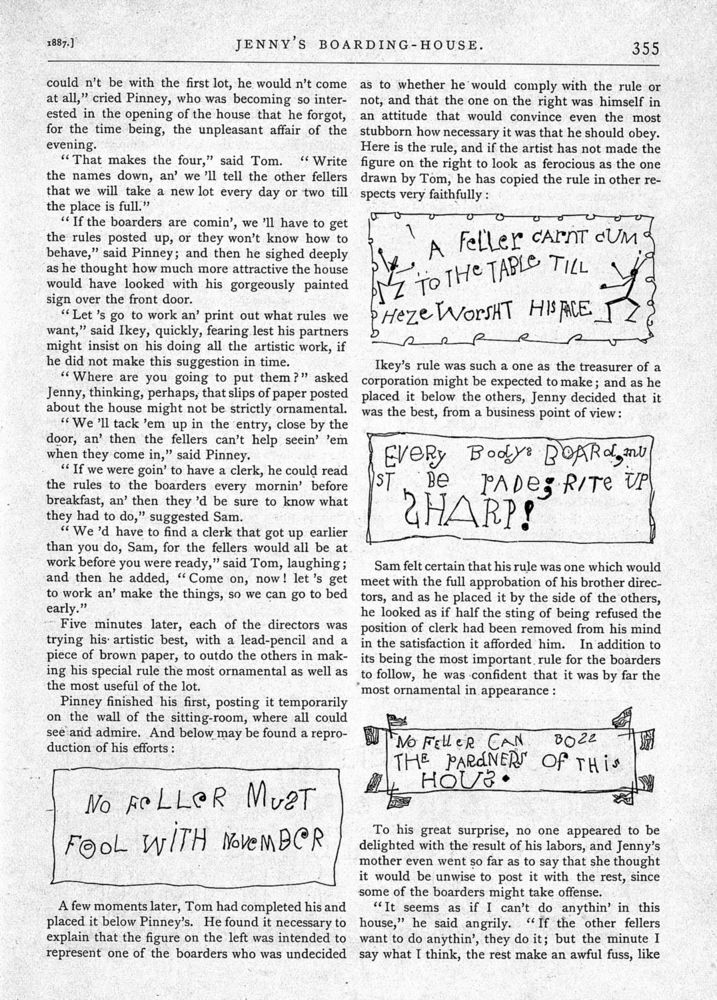 1887.]
JENNY'S BOARDING-HOUSE.
355
could n't be with the first lot, he would n't come
at all," cried Pinney, who was becoming so inter-
ested in the opening of the house that he forgot,
for the time being, the unpleasant affair of the
evening.
"That makes the four," said Tom. "Write
the names down, an' we 'll tell the other fellers
that we will take a new lot every day or two till
the place is full."
"If the boarders are comin', we 'll have to get
the rules posted up, or they won't know how to
behave," said Pinney; and then he sighed deeply
as he thought how much more attractive the house
would have looked with his gorgeously painted
sign over the front door.
"Let 's go to work an' print out what rules we
want," said Ikey, quickly, fearing lest his partners
might insist on his doing all the artistic work, if
he did not make this suggestion in time.
"Where are you going to put them?" asked
Jenny, thinking, perhaps, that slips of paper posted
about the house might not be strictly ornamental.
"We 'll tack 'em up in the entry, close by the
door, an' then the fellers can't help seein' 'em
when they come in," said Pinney.
"If we were goin' to have a clerk, he could read
the rules to the boarders every mornin' before
breakfast, an' then they 'd be sure to know what
they had to do," suggested Sam.
"We 'd have to find a clerk that got up earlier
than you do, Sam, for the fellers would all be at
work before you were ready," said Tom, laughing;
and then he added, "Come on, now! let 's get
to work an' make the things, so we can go to bed
early."
Five minutes later, each of the directors was
trying his artistic best, with a lead-pencil and a
piece of brown paper, to outdo the others in mak-
ing his special rule the most ornamental as well as
the most useful of the lot.
Pinney finished his first, posting it temporarily
on the wall of the sitting-room, where all could
see and admire. And below may be found a repro-
duction of his efforts:
No FeLLeR MusT
FooL WiTH NoveMBeR
A few moments later, Tom had completed his and
placed it below Pinney's. He found it necessary to
explain that the figure on the left was intended to
represent one of the boarders who was undecided
as to whether he would comply with the rule or
not, and that the one on the right was himself in
an attitude that would convince even the most
stubborn how necessary it was that he should obey.
Here is the rule, and if the artist has not made the
figure on the right to look as ferocious as the one
drawn by Tom, he has copied the rule in other re-
spects very faithfully:
A FelLer cARNT cUM
To THe TABLe TiLL
HezeWorsHT HIS FACE
Ikey's rule was such a one as the treasurer of a
corporation might be expected to make; and as he
placed it below the others, Jenny decided that it
was the best, from a business point of view:
EVeRy Bodys BOARd, mU
ST Be PADe; RITe UP
SHARP!
Sam felt certain that his rule was one which would
meet with the full approbation of his brother direc-
tors, and as he placed it by the side of the others,
he looked as if half the sting of being refused the
position of clerk had been removed from his mind
in the satisfaction it afforded him. In addition to
its being the most important rule for the boarders
to follow, he was confident that it was by far the
most ornamental in appearance:
No FeLLeR CAN BOZZ
THE PARdNERs OF THis
HOUS.
To his great surprise, no one appeared to be
delighted with the result of his labors, and Jenny's
mother even went so far as to say that she thought
it would be unwise to post it with the rest, since
some of the boarders might take offense.
"It seems as if I can't do anythin' in this
house," he said angrily. "If the other fellers
want to do anythin', they do it; but the minute I
say what I think, the rest make an awful fuss, like